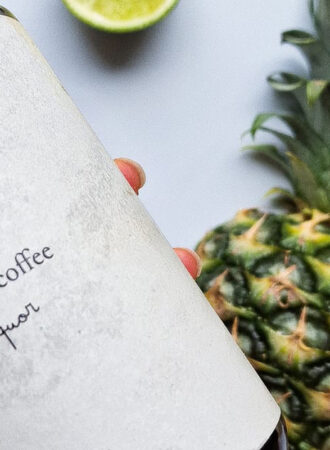 coffee
quor